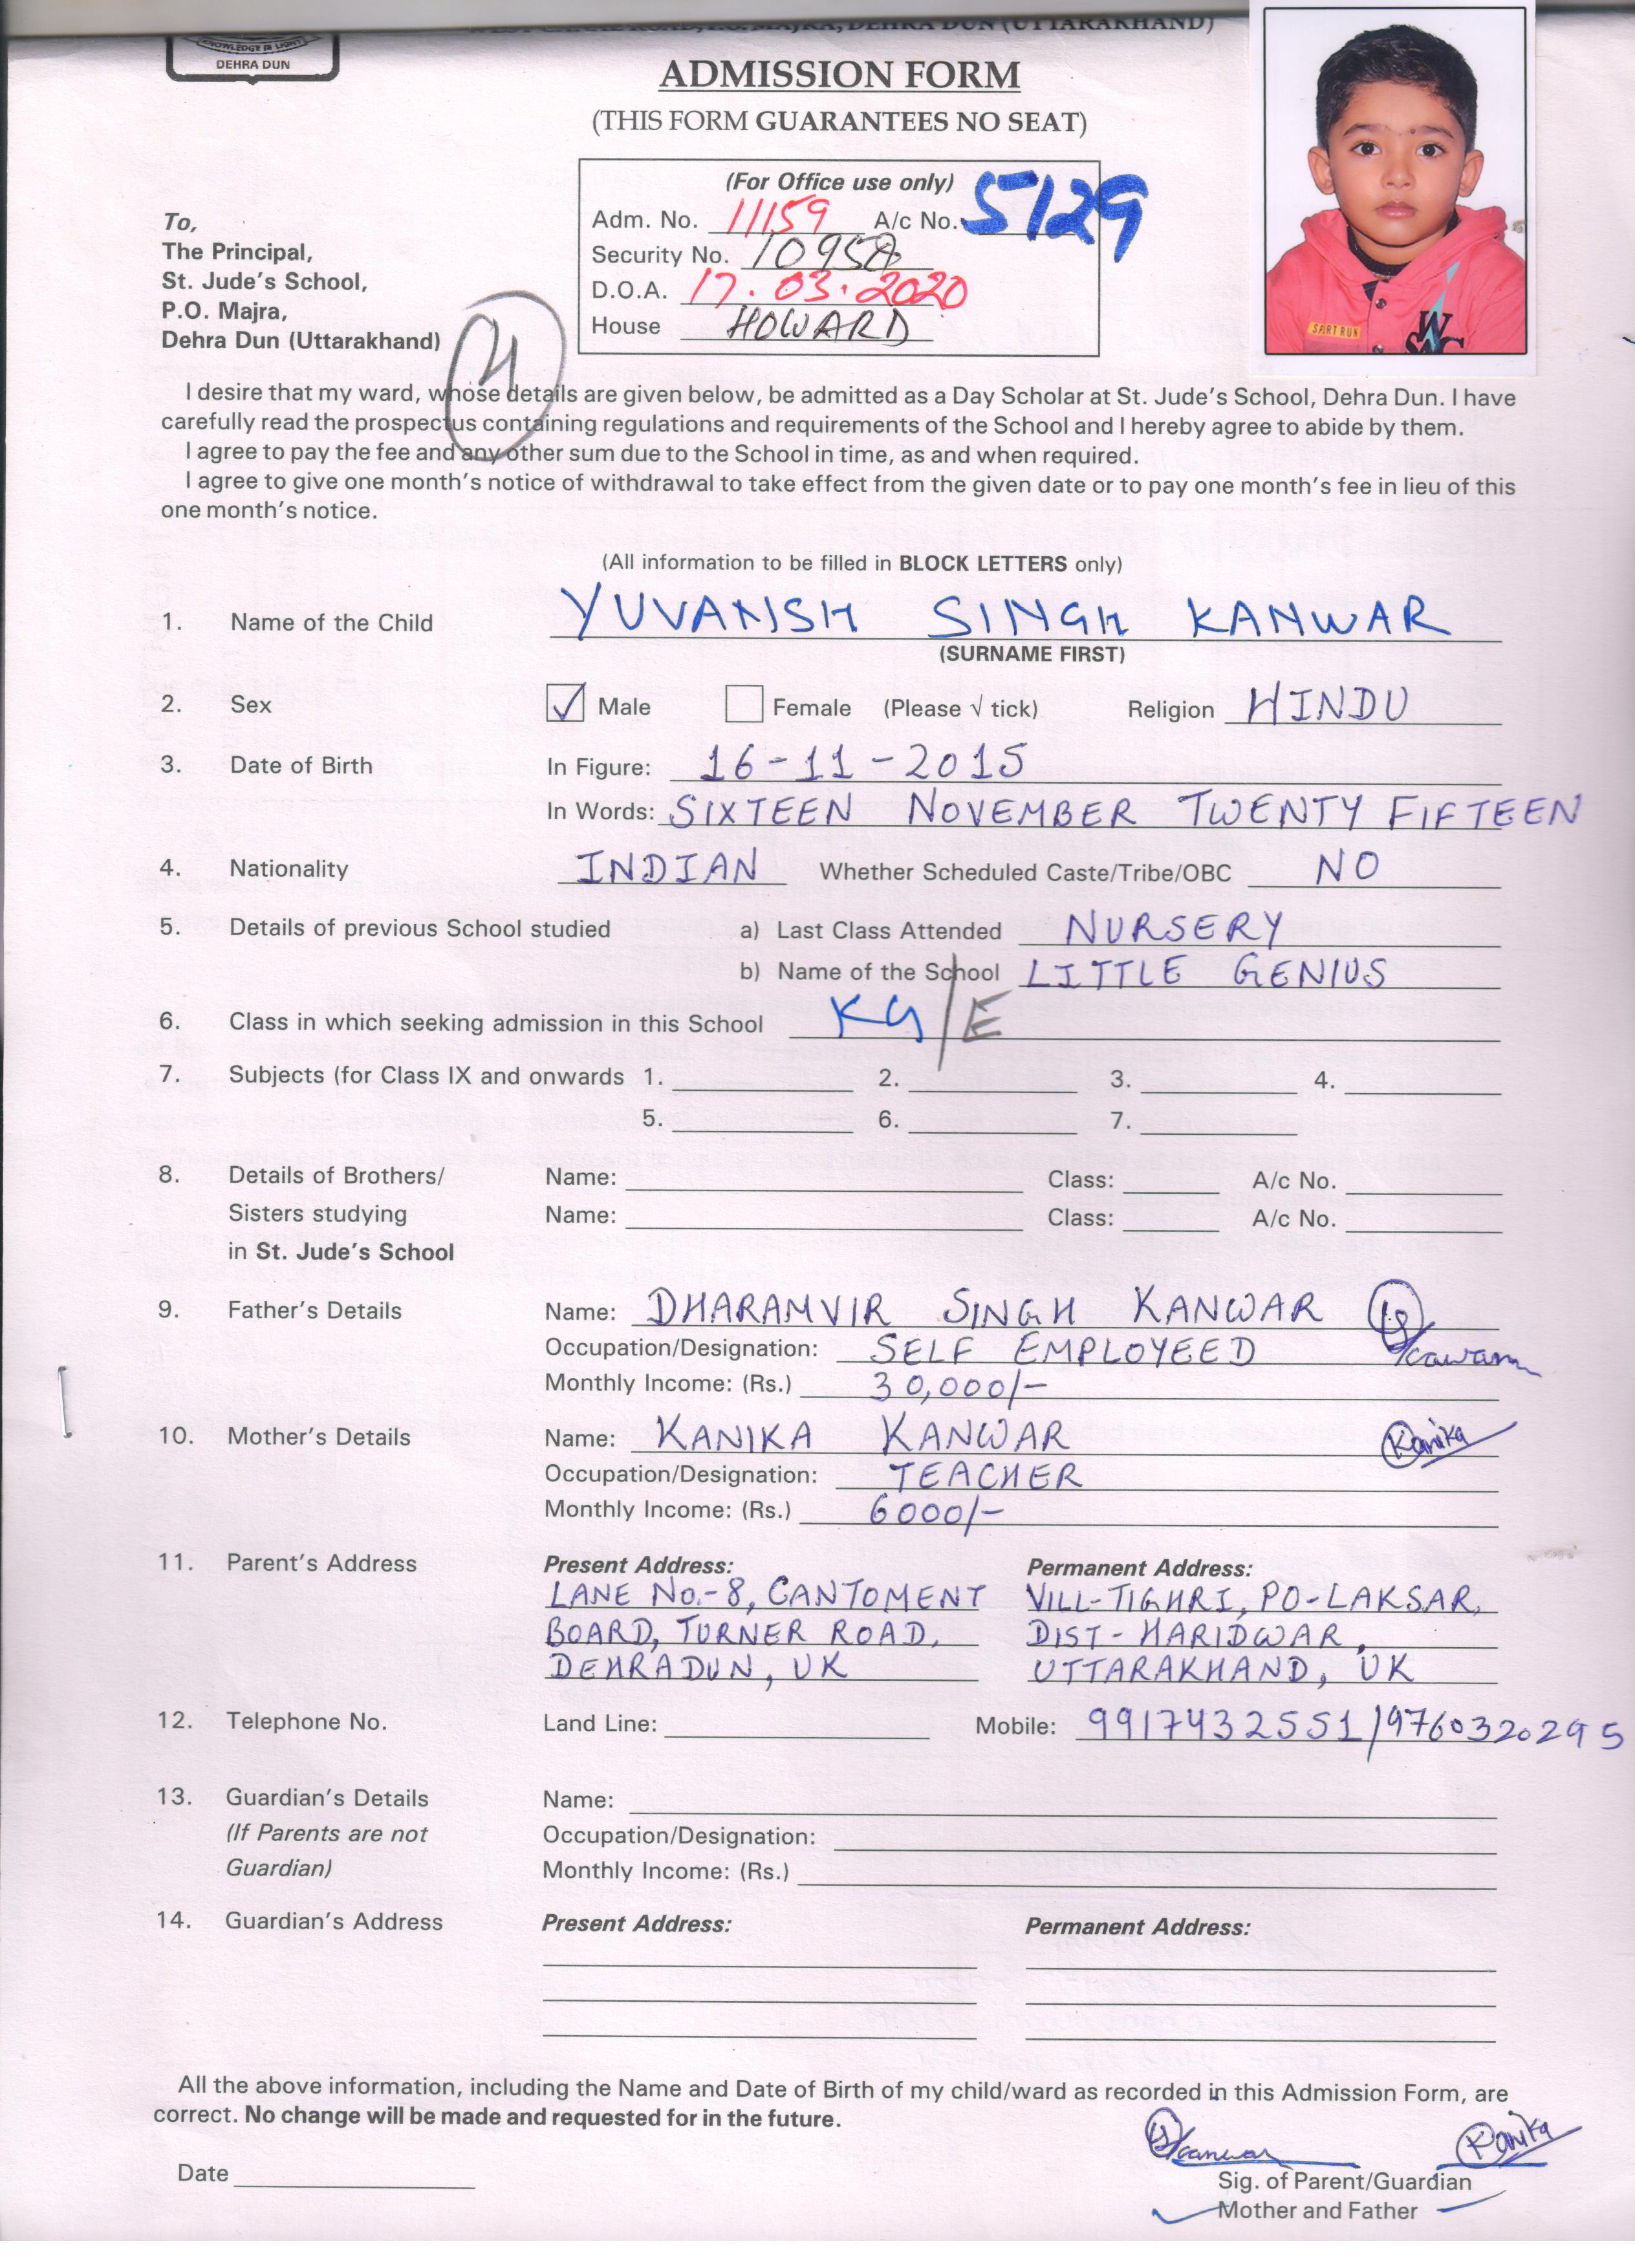 KNOWLEDGE IS LIGHT
DEHRA DUN
WEST CANAL ROAD, P.O. MAJRA, DEHRA DUN (UTTARAKHAND)
ADMISSION FORM
(THIS FORM GUARANTEES NO SEAT)
(For Office use only)
Adm. No. 11159 A/c No. 5129
Security No.
D.O.A. 17.03.2020
House HOWARD
To,
The Principal,
St. Jude's School,
P.O. Majra,
Dehra Dun (Uttarakhand)
SART RUN
I desire that my ward, whose details are given below, be admitted as a Day Scholar at St. Jude's School, Dehra Dun. I have
carefully read the prospectus containing regulations and requirements of the School and I hereby agree to abide by them.
I agree to pay the fee and any other sum due to the School in time, as and when required.
I agree to give one month's notice of withdrawal to take effect from the given date or to pay one month's fee in lieu of this
one month's notice.
(All information to be filled in BLOCK LETTERS only)
1. Name of the Child YUVANSH SINGH KANWAR
(SURNAME FIRST)
2. Sex ✓ Male Female (Please √ tick) Religion HINDU
3. Date of Birth In Figure: 16-11-2015
In Words: SIXTEEN NOVEMBER TWENTY FIFTEEN
4. Nationality INDIAN Whether Scheduled Caste/Tribe/OBC NO
5. Details of previous School studied a) Last Class Attended NURSERY
b) Name of the School LITTLE GENIUS
6. Class in which seeking admission in this School KG/E
7. Subjects (for Class IX and onwards 1. 2. 3. 4.
5. 6. 7.
8. Details of Brothers/ Name: Class: A/c No.
Sisters studying Name: Class: A/c No.
in St. Jude's School
9. Father's Details Name: DHARAMVIR SINGH KANWAR
Occupation/Designation: SELF EMPLOYEED
Monthly Income: (Rs.) 30,000/-
10. Mother's Details Name: KANIKA KANWAR Kanika
Occupation/Designation: TEACHER
Monthly Income: (Rs.) 6000/-
11. Parent's Address Present Address: Permanent Address:
LANE No.-8, CANTOMENT VILL-TIGHRI, PO-LAKSAR,
BOARD, TURNER ROAD, DIST-HARIDWAR,
DEHRADUN, UK UTTARAKHAND, UK
12. Telephone No. Land Line: Mobile: 9917432551/9760320295
13. Guardian's Details Name:
(If Parents are not Occupation/Designation:
Guardian) Monthly Income: (Rs.)
14. Guardian's Address Present Address: Permanent Address:
All the above information, including the Name and Date of Birth of my child/ward as recorded in this Admission Form, are
correct. No change will be made and requested for in the future.
Kanika
Date
Sig. of Parent/Guardian
Mother and Father